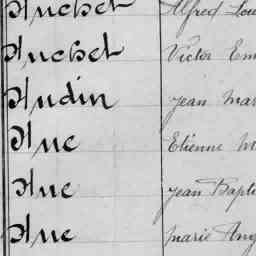 Huchet Alfred Lou
Huchet Victor Em
Hudin Jean Mar
Hue Etienne M
Hue Jean Bapti
Hue Marie Ang